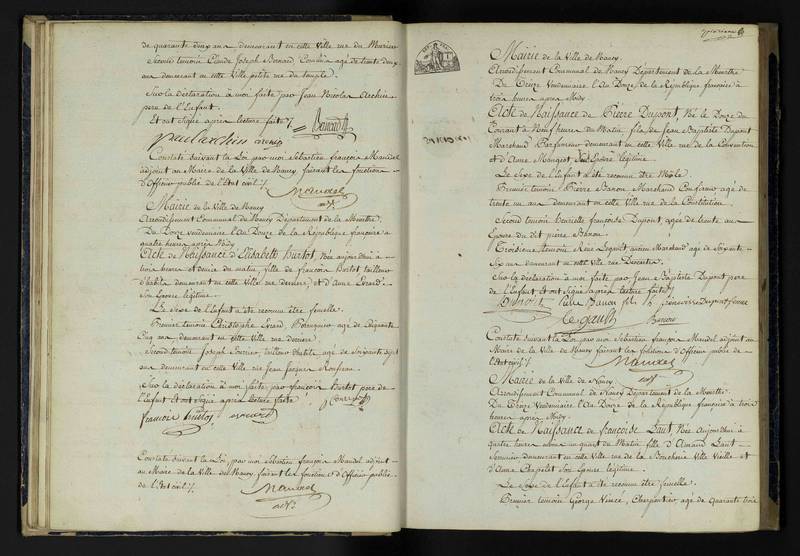 de quarante deux ans demeurant en cette Ville rue du
Second témoin Claude Joseph Bernard Commis agé de trente deux
ans demeurant en cette Ville petite rue du temple.
Sur la déclaration à moi faite par Jean Nicolas
pere de l'Enfant.
Et ont signé après lecture faite
Constaté suivant la Loi par moi Sébastien françois Mandel
adjoint au Maire de la Ville de Nancy faisant les fonctions
d'Officier public de l'état civil
Mandel
adjt
Mairie de la Ville de Nancy
Arrondissement Communal de Nancy Département de la Meurthe.
Du Douze Vendemiaire l'an Douze de la République française à
quatre heures après Midy
Acte de Naissance d'Elisabeth Burtot, Née aujourd'hui à
trois heures et demie du matin, fille de françois Burtot tailleur
d'habits demeurant en cette Ville rue derriere, et d'Anne Evrard
Son Epouse légitime.
Le Sexe de l'Enfant a été reconnu être femelle.
Premier témoin Christophe Evrard, agé de Cinquante
Cinq ans demeurant en cette Ville rue derriere
Second témoin Joseph tailleur d'habits agé de Soixante Sept
ans demeurant en cette Ville rue Jean Jacques Rousseau.
Sur la déclaration à moi faite par françois Burtot pere de
l'Enfant et ont Signé après lecture faite
Constaté suivant la Loi, par moi Sébastien françois Mandel adjoint
au Maire de la Ville de Nancy faisant les fonctions d'Officier public
de l'état civil
Mandel
adjt
Mairie de la Ville de Nancy.
Arrondissement Communal de Nancy Département de la Meurthe
Du Treize Vendemiaire l'an Douze de la République française à
trois heures après Midy
Acte de Naissance de Pierre Dupont, Né le Douze du
Courant à Neuf heures du Matin fils de Jean Baptiste Dupont
Marchand Parfumeur demeurant en cette Ville rue de la Convention
et d'Anne Mangeot, Son Epouse légitime.
Le Sexe de l'Enfant a été reconnu être Mâle.
Premier témoin Pierre Banon Marchand agé de
trente un ans demeurant en cette Ville rue de la Constitution.
Second témoin henriette françoise Dupont, agée de trente ans
Epouse du dit pierre Banon.
Troisième témoin René Legault ancien Marchand agé de Soixante
Six ans demeurant en cette Ville rue Descartes.
Sur la déclaration à moi faite par Jean Baptiste Dupont pere
de l'Enfant et ont signé après lecture faite
Dupont
Legault
Banon
Constaté suivant la Loi par moi Sébastien françois Mandel adjoint au
Maire de la Ville de Nancy faisant les fonctions d'Officier public de
l'état civil
Mandel
adjt
Mairie de la Ville de Nancy
Arrondissement Communal de Nancy Département de la Meurthe.
Du Treize Vendemiaire l'An Douze de la République française à trois
heures après Midy.
Acte de Naissance de françoise Laut Née Aujourd'hui à
quatre heures moins un quart du Matin fille d'Amand Laut
demeurant en cette Ville rue de la Boucherie Ville Vieille et
d'Anne Chapelet Son Epouse légitime.
Le Sexe de l'Enfant a été reconnu être femelle.
Premier témoin George Vincé, Charpentier, agé de quarante trois